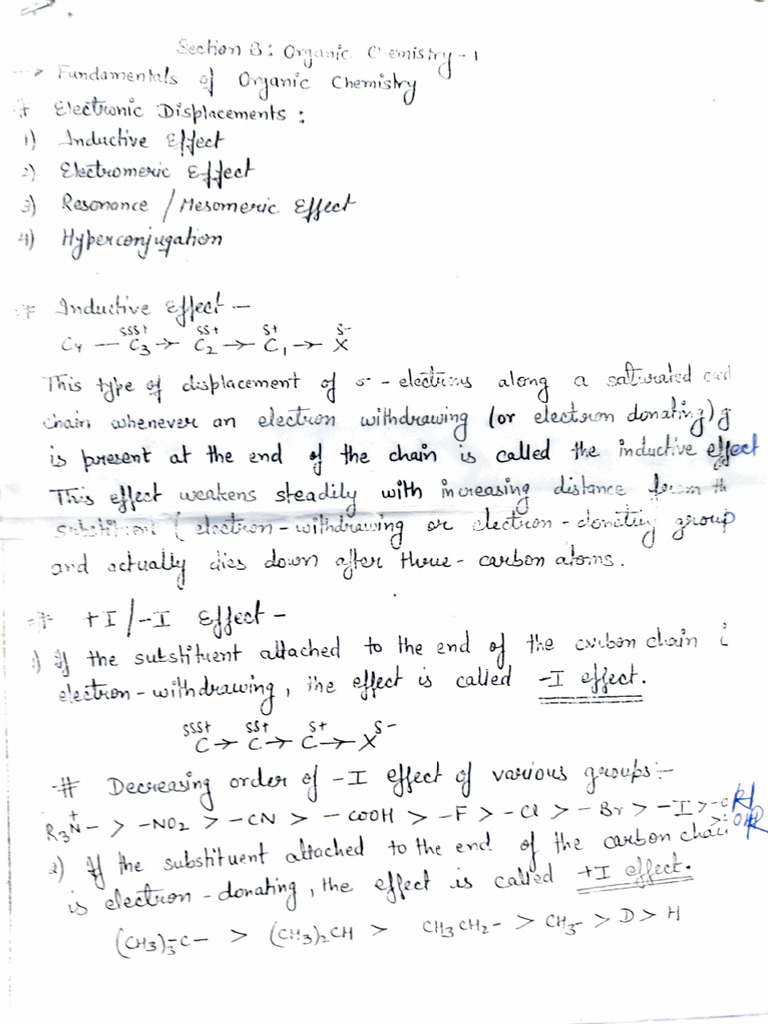 Section B: Organic Chemistry - 1
→ Fundamentals of Organic Chemistry
# Electronic Displacements :
1) Inductive Effect
2) Electromeric Effect
3) Resonance / Mesomeric Effect
4) Hyperconjugation
# Inductive Effect —
C₄ — C₃^δδδ+ → C₂^δδ+ → C₁^δ+ → X^δ-
This type of displacement of σ - electrons along a saturated
chain whenever an electron withdrawing (or electron donating) g
is present at the end of the chain is called the inductive effect
This effect weakens steadily with increasing distance from th
substituent (electron - withdrawing or electron - donating group
and actually dies down after three - carbon atoms.
# +I/-I Effect -
1) If the substituent attached to the end of the carbon chain i
electron - withdrawing, the effect is called -I effect.
C^δδδ+ → C^δδ+ → C^δ+ → X^δ-
# Decreasing order of -I effect of various groups :-
R₃N⁺- > -NO₂ > -CN > -COOH > -F > -Cl > -Br > -I >
2) If the substituent attached to the end of the carbon chai
is electron - donating, the effect is called +I effect.
(CH₃)₃-C- > (CH₃)₂CH > CH₃CH₂- > CH₃- > D > H